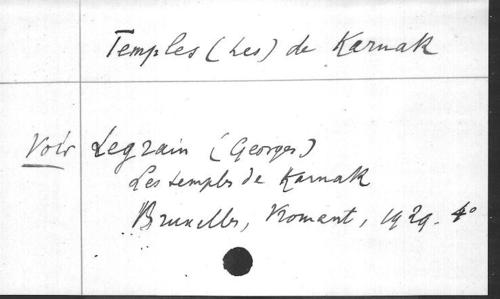 Temples (Les) de Karnak
Voir Legrain (Georges)
Les temples de Karnak
Bruxelles, Vromant, 1929. 4°